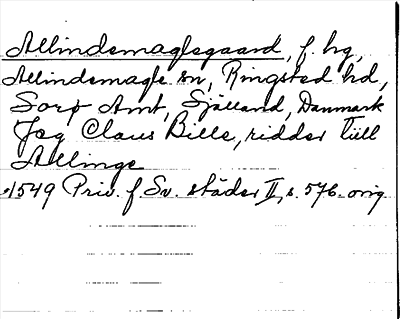 Allindemaglegaard, f. hg,
Allindemagle sn, Ringsted hd,
Sorø Amt, Själland, Danmark
Jeg Claus Bille, ridder tüll
Allinge
1549 Priv. f. Sv. städer II, s. 576. orig